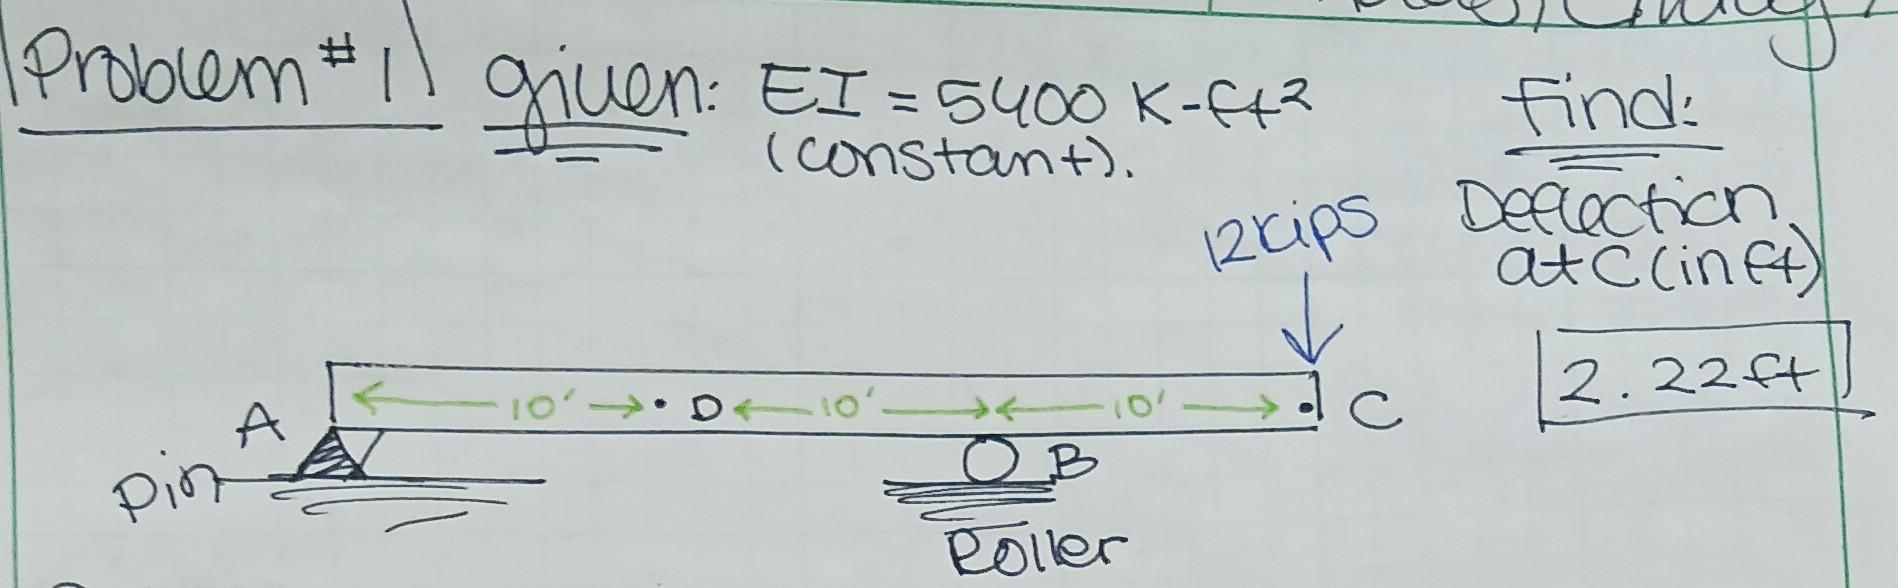 Problem #1
given: EI = 5400 K-ft²
(constant).
find:
Deflection
at C (in ft)
2.22ft
12kips
A
10'
D
10'
10'
C
Pin
B
Roller